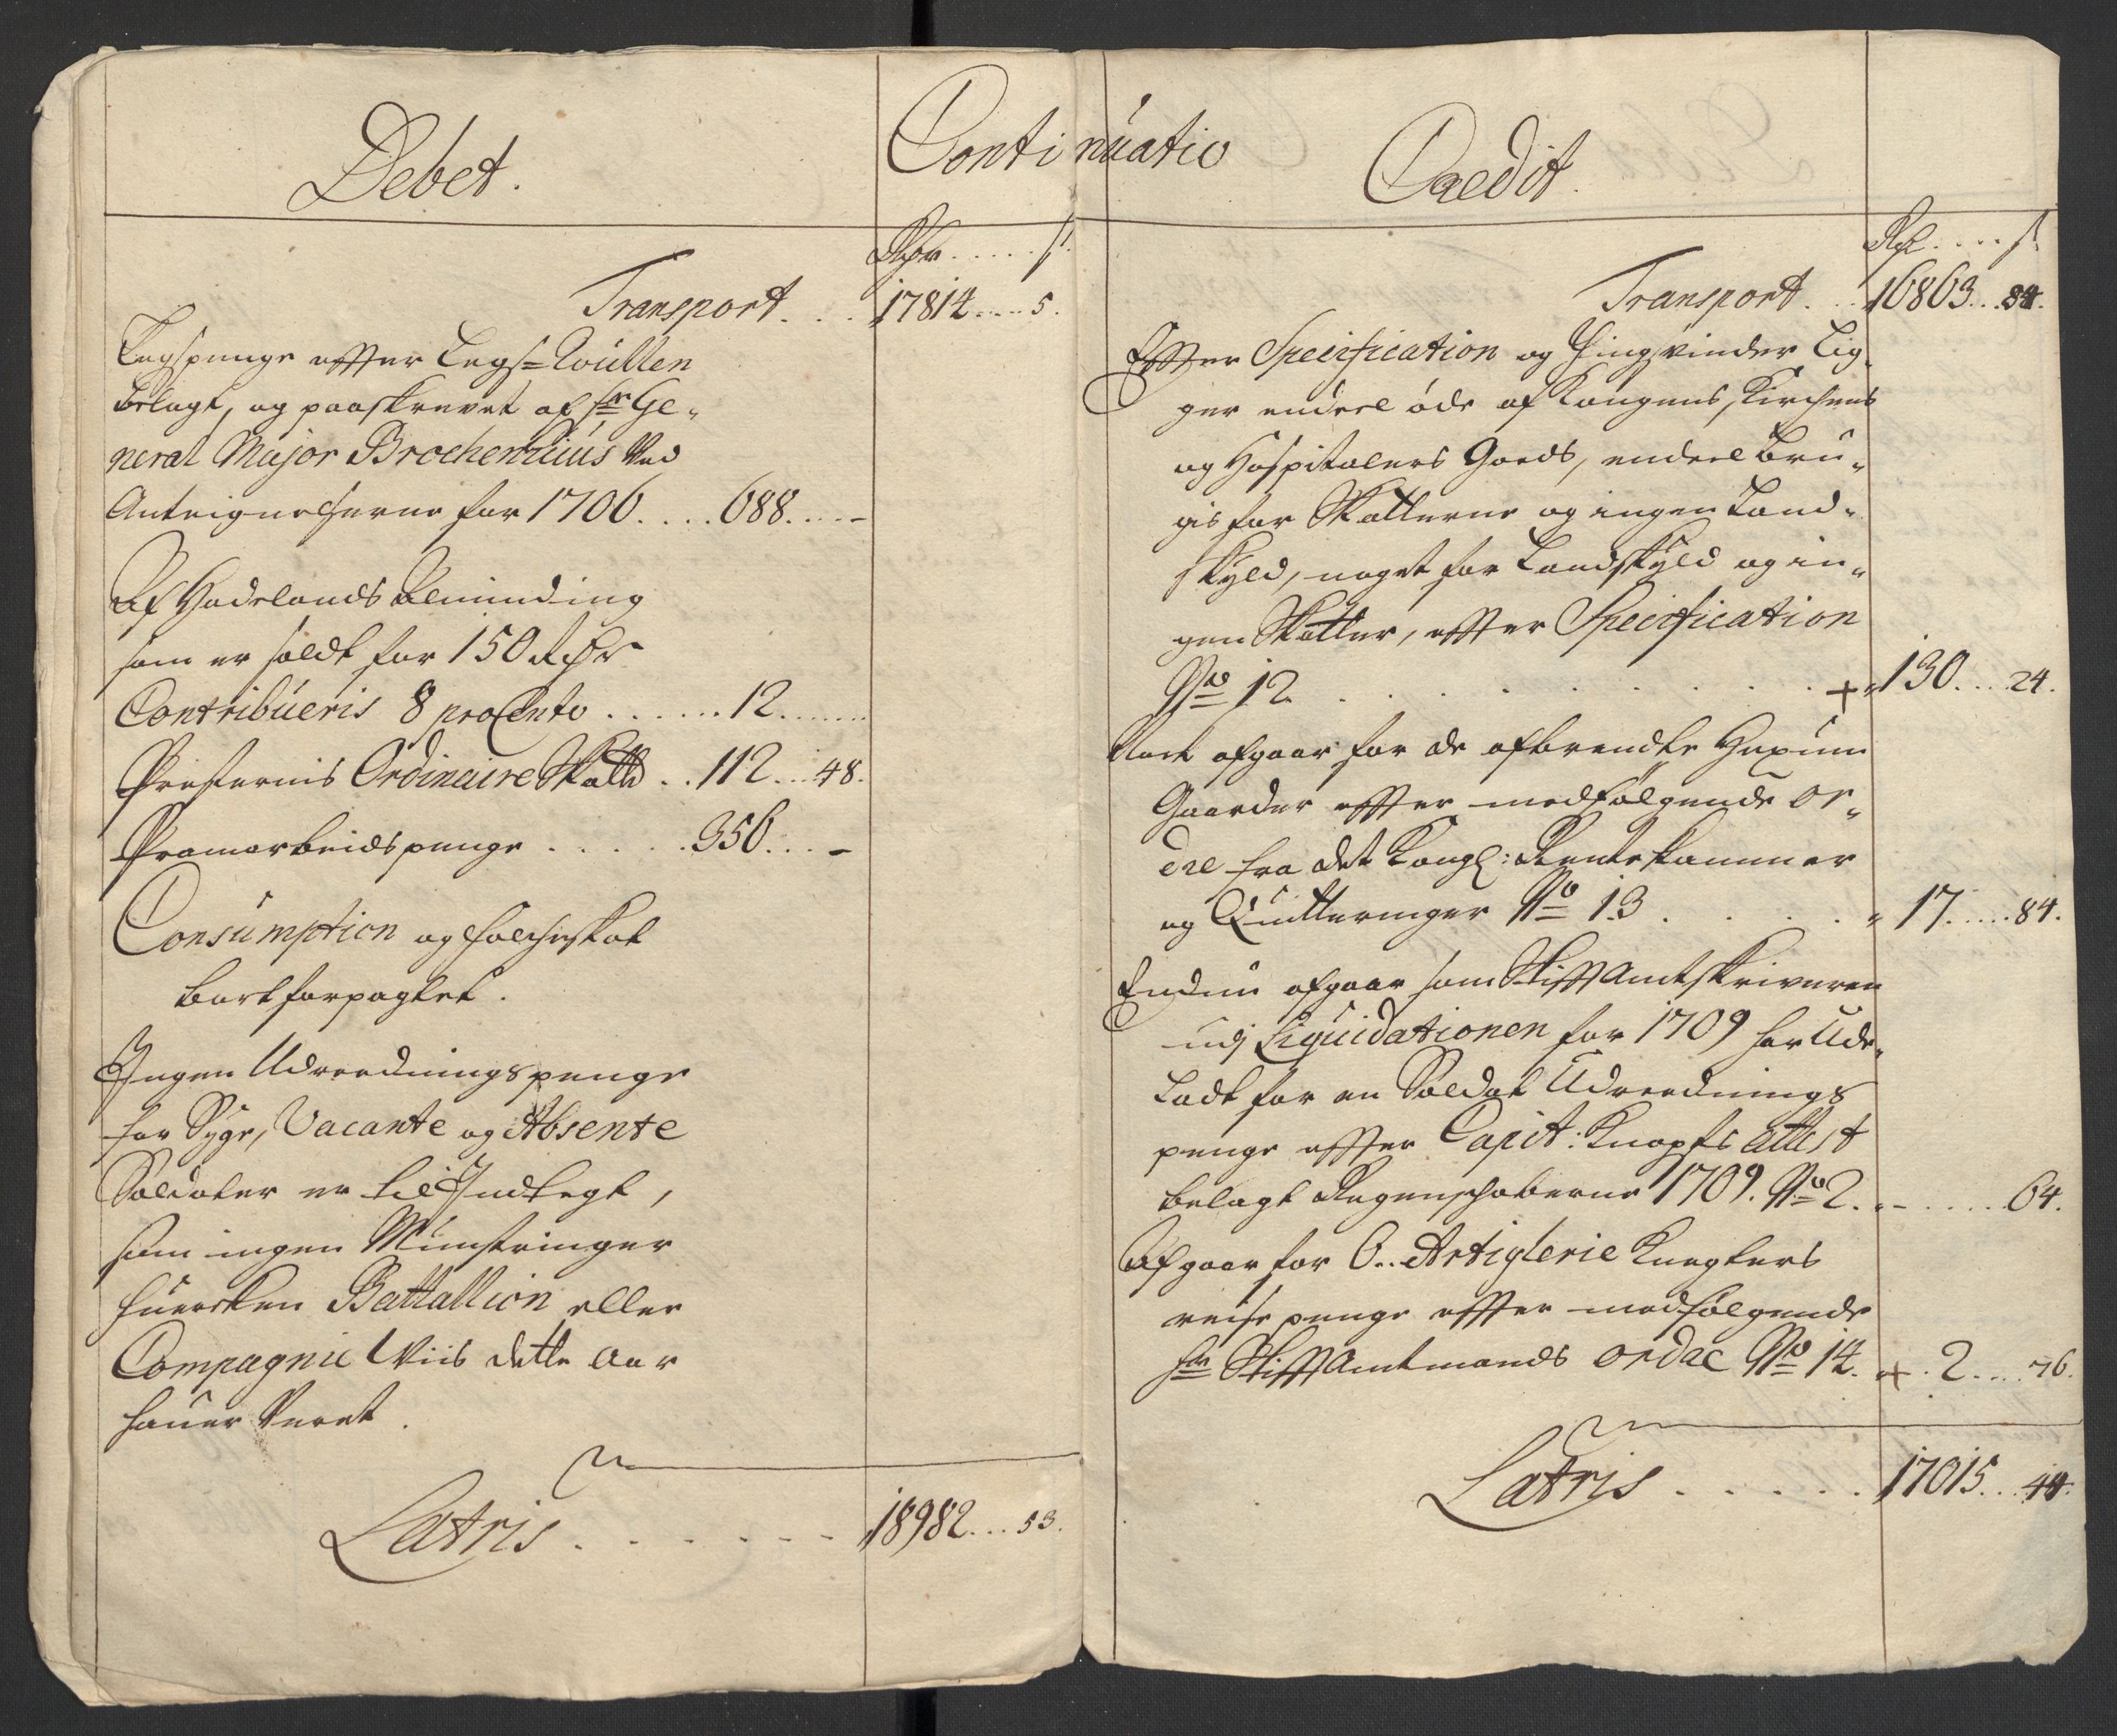 Debet.
Continuatio
Rdr ..... s.
Transport. . . 17814.....5.
Legspenge effter Legs-Roullen
belagt, og paaskrevet af hr Ge-
neral Major Brochenhuus Ved
Anteignelserne for 1706. . . . 688. . . . -
Af Hadelands Alminding
som er soldt for 150 Rdr
Contribueris 8 pro Cento . . . . . . 12. . . . . .
Presternis Ordinaire Skatt . . 112 . . . 48.
Pramarbeids penge . . . . . 356. . . -
Consumption og folcheskat
bort forpagtet.
Ingen Udreednings penge
for Syge, Vacante og Absente
Soldater er til Indtegt,
som ingen Munstringer
huercken Battallion eller
Compagnie Wiis dette Aar
hauer Veret.
Latris . . . . . . . 18982. . . 53.
Credit.
Rd . . . . s.
Transport. . . 16863. . 84.
Effter Specification og Tingsvinder Lig-
ger endeel øde af Kongens, Kirchens
og Hospitalers Goeds, endeel bru-
gis for Skatterne og ingen Land-
skyld, noget for Landskyld og in-
gen Skatter, effter Specification
No 12 . . . . . . . . . + 130. . . 24.
Noch afgaar for de afbrendte Hexum
Gaarder effter medfølgende or-
dre fra det Kongl: Rentekammer
og Quitteringer No 13 . . . . . 17. . . . . 84.
Endnu afgaar som Stifftamtskriveren
udj Liquidationen for 1709 har Ude-
ladt for en Soldat Udreednings
penge effter Capit: Knopfs attest
belagt Regenskaberne 1709. No 2. . - . . . . . 64.
Afgaar for 6.. Artiglerie Knegters
reise penge effter medfølgende
hr Stifftamtmands ordre No 14. + . 2 . . . . 76.
Latris . . . . . 17015. . . 44.